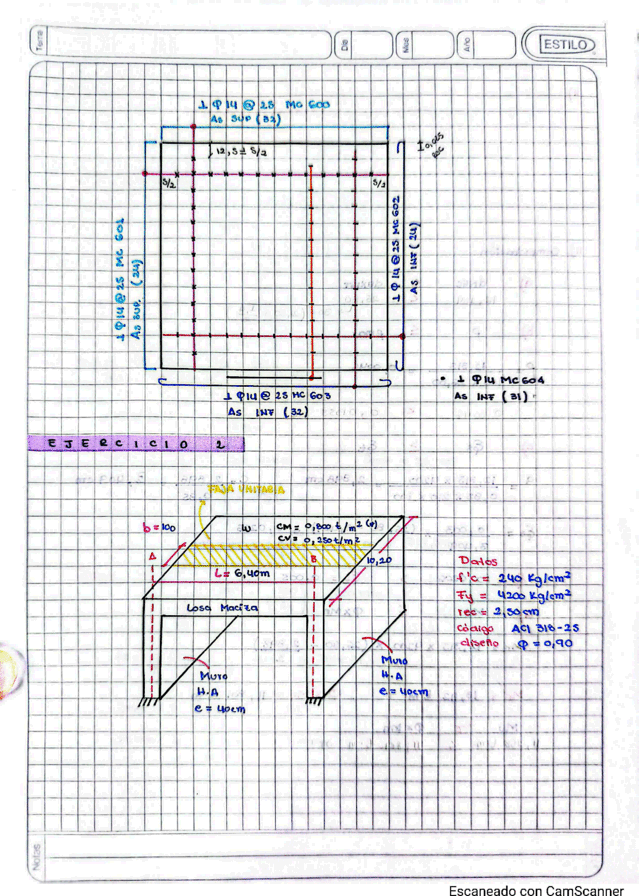 Tema
Día
Mes
Año
ESTILO
1 Φ 14 @ 25 MC 600
As SUP (32)
12,5 = S/2
0,025
rec
S/2
S/2
1 Φ 14 @ 25 MC 601
As SUP. (24)
1 Φ 14 @ 25 MC 602
As INF (24)
• 1 Φ 14 MC 604
As INF (31)
1 Φ 14 @ 25 MC 603
As INF (32)
EJERCICIO 2
FAJA UNITARIA
b = 100
W
CM = 0,800 t/m² (+)
CV = 0,250 t/m²
A
B
10,20
L = 6,40m
Losa Maciza
Datos
f'c = 240 Kg/cm²
Fy = 4200 Kg/cm²
rec = 2,50 cm
código ACI 318-25
diseño Φ = 0,90
Muro
H.A
e = 40cm
Muro
H.A
e = 40cm
Notas
Escaneado con CamScanner